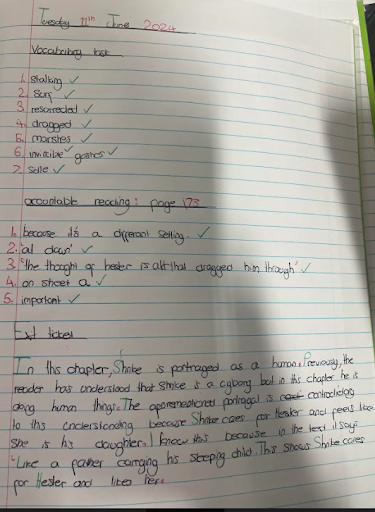 Tuesday 11th June 2024
Vocabulary task
1. stalking ✓
2. Scuff ✓
3. resurrected ✓
4. dragged ✓
5. marshes ✓
6. invincible ✓ gashes ✓
7. ✓
accountable reading: page 173
1. because it's a different setting. ✓
2. 'al down' ✓
3. 'the thought of hester is all that dragged him through' ✓
4. on sheet a ✓
5. important ✓
Exit ticket
In this chapter, Shrike is portraged as a human. Previously, the
reader has understood that Shrike is a cyborg but in this chapter he is
doing human things. The aporementioned portragal is contradicting
to this understanding because Shrike cares for Hester and feels like
she is his daughter. I know this because in the text it says
"Like a father carrying his sleeping child. This shows Shrike cares
for Hester and likes her.